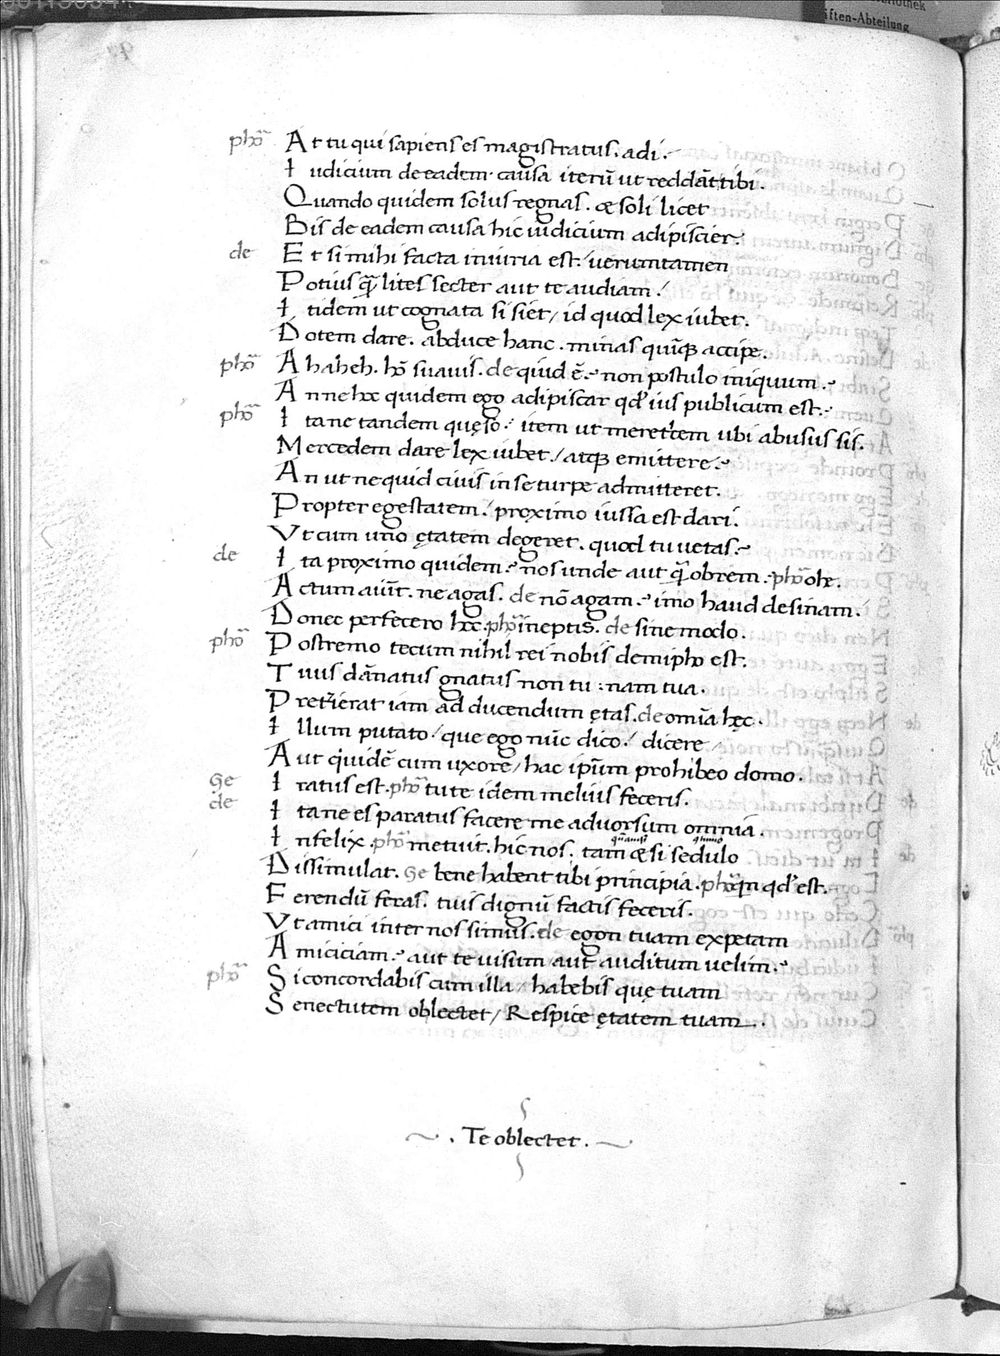 phõ At tu qui sapiens es magistratus. adi.
Iudicium de eadem causa iterũ ut reddãt tibi.
Quando quidem solus regnas. & soli licet
Bis de eadem causa hic iudicium adipiscier.
de Et si mihi facta iniuria est. uerumtamen
Potius q̃ lites secter aut te audiam /
Itidem ut cognata si siet / id quod lex iubet.
Dotem dare. abduce hanc. minas quinq; accipe.
phõ Ahaheh. hõ suauis. de quid ẽ. non postulo iniquum.
An ne hoc quidem ego adipiscar qđ ius publicum est.
phõ Itane tandem quęso. item ut meretricem ubi abusus sis.
Mercedem dare lex iubet / atq; emittere.
An ut nequid ciuis in se turpe admitteret.
Propter egestatem / proximo iussa est dari.
Vt cum uno ętatem degeret. quod tu uetas.
de Ita proximo quidem. nos unde aut q̃ obrem. phõ ohe.
Actum aiũt. ne agas. de nõ agam. imo haud desinam.
Donec perfecero hoc. phõ ineptis. de sine modo.
phõ Postremo tecum nihil rei nobis demipho est.
Tuus dãnatus gnatus non tu : nam tua.
Preterierat iam ad ducendum ętas. de omĩa hęc.
Illum putato / que ego nũc dico / dicere
Aut quidẽ cum uxore / hac ipsum prohibeo domo.
Ge Iratus est. phõ tute idem melius feceris.
de Itane es paratus facere me aduorsum omnia.
Infelix. phõ metuit. hic nos. tam & si sedulo
Dissimulat. Ge bene habent tibi principia. phõ qn qđ est.
Ferendũ feras. tuis dignũ factis feceris.
Vt amici inter nos simus. de egon tuam expetam
Amiciciam. aut te uisum aut auditum uelim.
phõ Si concordabis cum illa / habebis quę tuam
Senectutem oblectet / Respice ętatem tuam.
. Te oblectet .